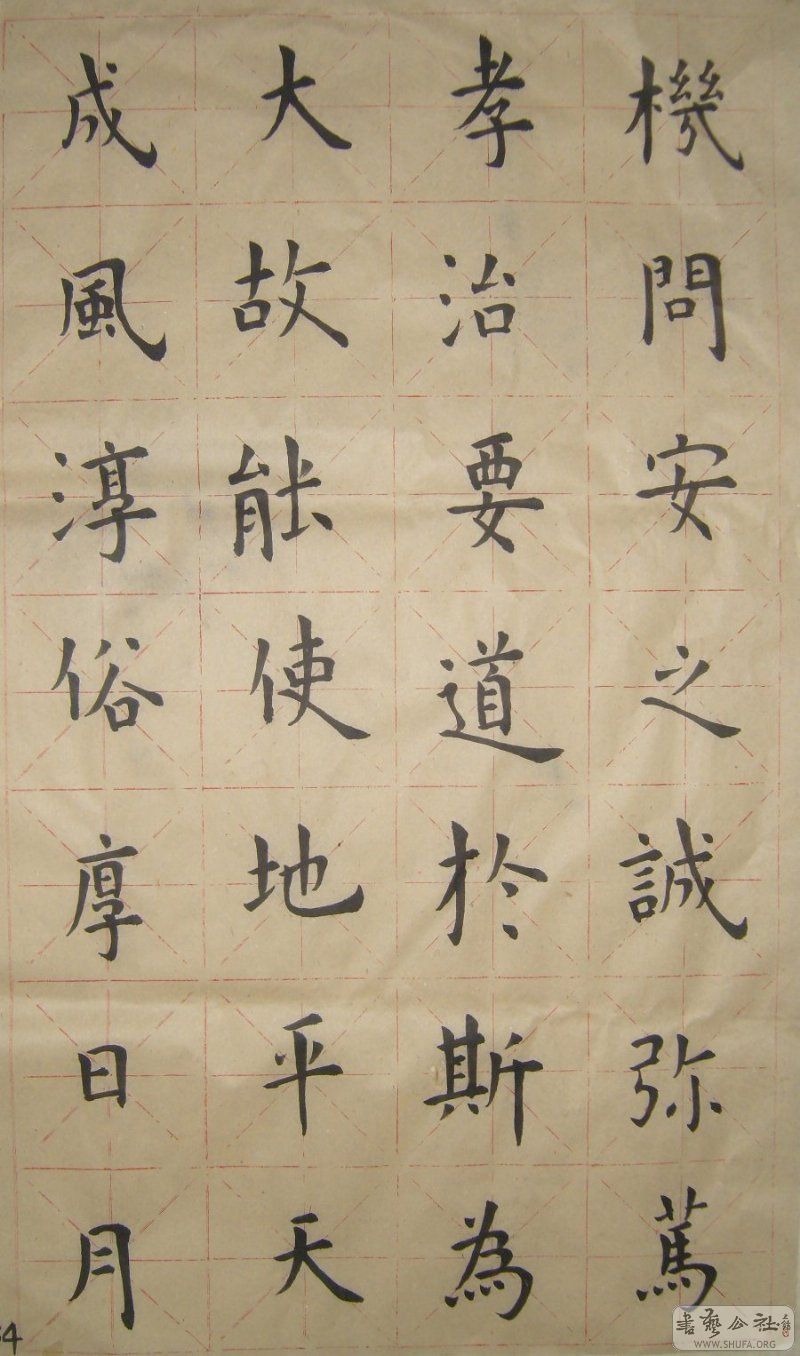 機問安之誠弥篤
孝治要道於斯為
大故能使地平天
成風淳俗厚日月
4
書藝公社
WWW.SHUFA.ORG